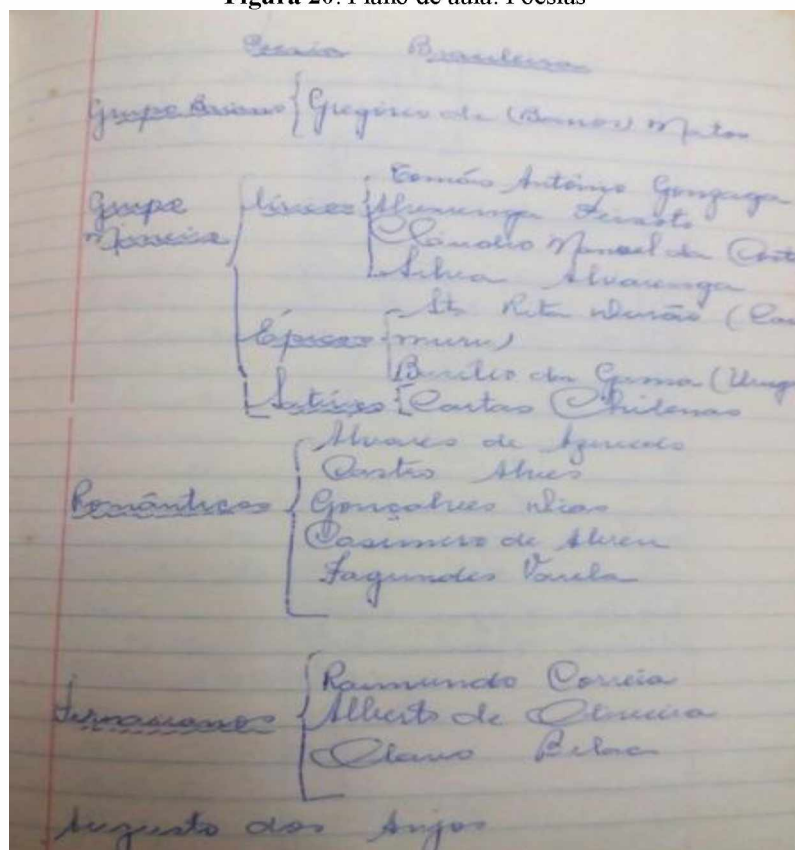 Figura 20: Plano de aula: Poesias
Poesia Brasileira
Grupo Baiano { Gregório de Matos
Grupo Mineiro
Líricos
Tomás Antônio Gonzaga
Alvarenga Peixoto
Cláudio Manoel da Cost
Silva Alvarenga
Épicos
Sta Rita Durão (Ca
muru)
Basílio da Gama (Urug
Cartas Chilenas
Românticos
Álvares de Azevedo
Castro Alves
Gonçalves Dias
Casimiro de Abreu
Fagundes Varela
Raimundo Correia
Alberto de Oliveira
Olavo Bilac
Augusto dos Anjos